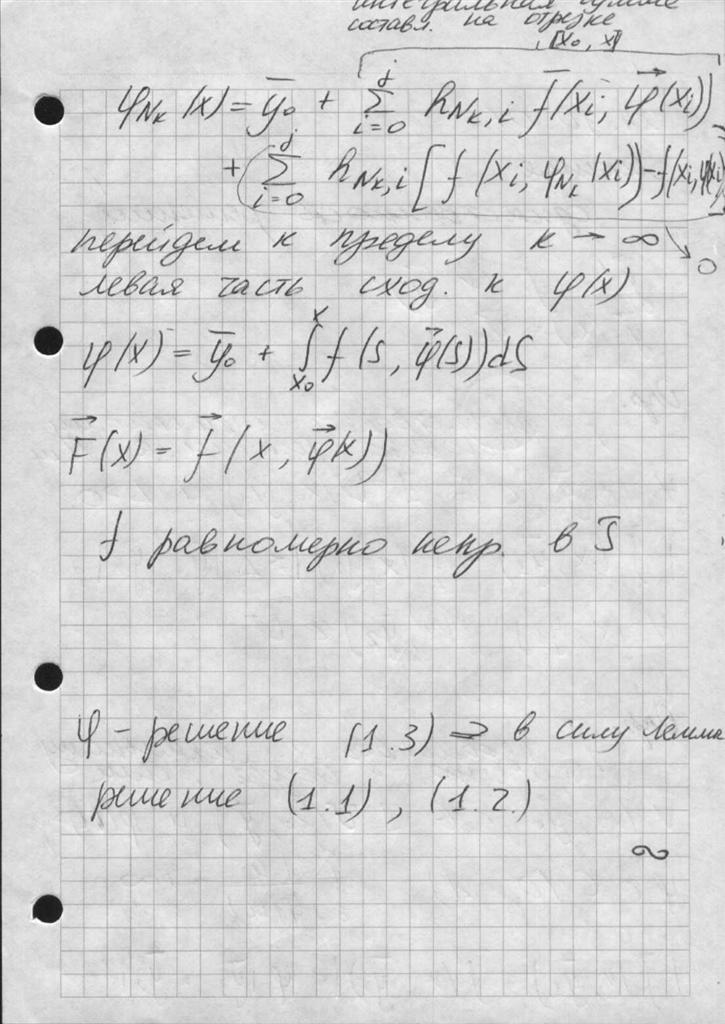 интегральная сумма
составл. на отрезке
[x₀, x]
φ_{N_k}(x) = ȳ₀ + Σ_{i=0}^{j} h_{N_k,i} f̄(x_i, φ⃗(x_i))
+ Σ_{i=0}^{j} h_{N_k,i} [f(x_i, φ_{N_k}(x_i)) - f(x_i, φ(x_i)
перейдем к пределу k → ∞ → 0
левая часть сход. к φ(x)
φ(x) = ȳ₀ + ∫_{x₀}^{x} f(s, φ⃗(s))ds
F⃗(x) = f⃗(x, φ⃗(x))
f равномерно непр. в S̄
φ - решение (1.3) ⇒ в силу Леммы
решение (1.1), (1.2.)